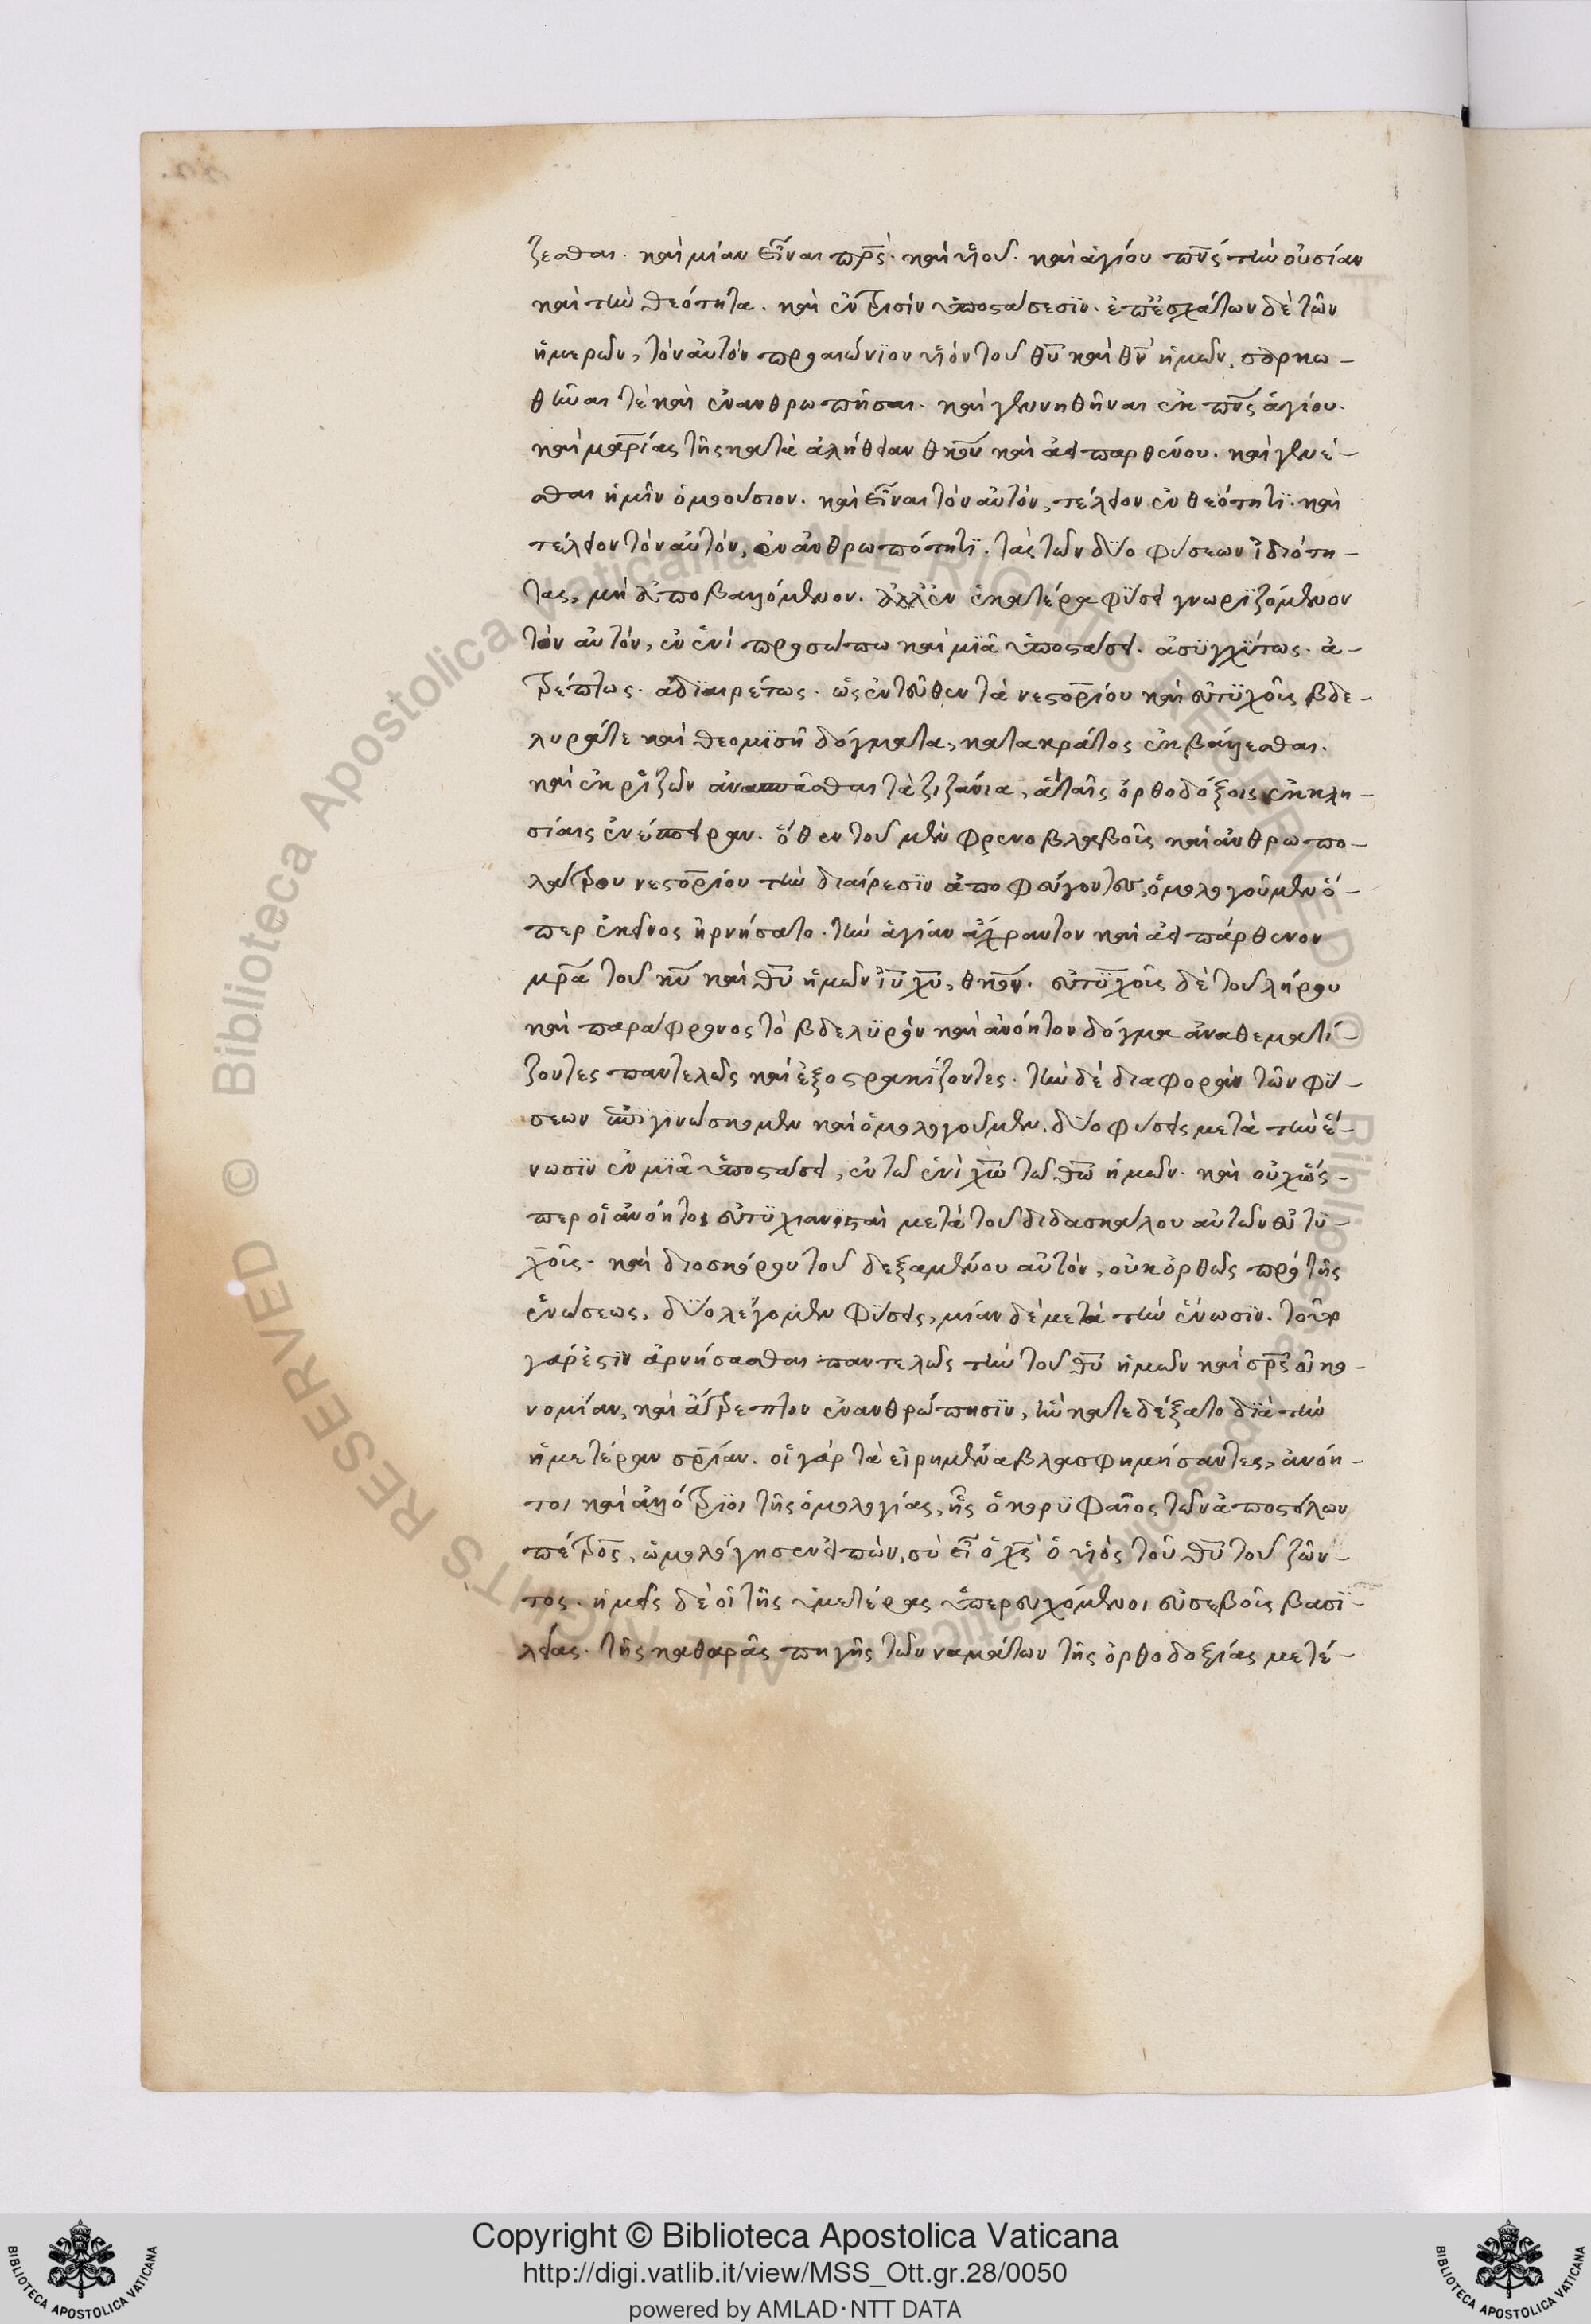 ζεσθαι. καὶ μίαν εἶναι πρ̅ς. καὶ υἱοῦ. καὶ ἁγίου πν̅ς τὴν οὐσίαν
καὶ τὴν θεότητα. καὶ ἐν τρισὶν ὑποστάσεσϊν. ἐπ' ἐσχάτων δὲ τῶν
ἡμερῶν, τὸν αὐτὸν προαιώνϊον υἱὸν τοῦ θυ̅ καὶ θν̅ ἡμῶν, σαρκω-
θῆναι τὲ καὶ ἐνανθρωπῆσαι. καὶ γεννηθῆναι ἐκ πν̅ς ἁγίου.
καὶ μαρίας τῆς κατὰ ἀλήθειαν θκου̅ καὶ ἀειπαρθένου. καὶ γενέ-
σθαι ἡμῖν ὁμοούσιον. καὶ εἶναι τὸν αὐτὸν, τέλειον ἐν θεότητϊ. καὶ
τέλειον τὸν αὐτὸν, ἐν ἀνθρωπότητϊ. τὰς τῶν δύο φύσεων ἰδιότη-
τας, μὴ ἀποβαλλόμενον. ἀλλ' ἐν ἑκατέρα φύσει γνωρϊζόμενον
τὸν αὐτόν, ἐν ἑνὶ προσώπω καὶ μϊᾶ ὑποστάσει. ἀσϋγχΰτως. ἀ-
τρέπτως. ἀδϊαιρέτως. ὡς ἐντεῦθεν τὰ νεστορίου καὶ εὐτϋχοῦς βδε-
λυράτε καὶ θεομϊσῆ δόγματα, κατακράτος ἐκβάλλεσθαι.
καὶ ἐκ ῥϊζῶν ἀνασπᾶσθαι τὰ ζιζάνια, ἃ ταῖς ὀρθοδόξοις ἐκκλη-
σίαις ἐνέσπειραν. ὅθεν τοῦ μὲν φρενοβλαβοῦς καὶ ἀνθρωπο-
λάτρου νεστορίου τὴν διαίρεσϊν ἀποφεύγοντες, ὁμολογοῦμεν ὅ-
περ ἐκεῖνος ἠρνήσατο. τὴν ἁγίαν ἄχραντον καὶ ἀειπάρθενον
μρ̅α τοῦ κυ̅ καὶ θυ̅ ἡμῶν ιυ̅ χυ̅, θκον̅. εὐτϋχοῦς δὲ τοῦ λήρου
καὶ παράφρονος τὸ βδελϋρὸν καὶ ἀνόητον δόγμα ἀναθεματί-
ζοντες παντελῶς καὶ ἐξοστρακίζοντες. τὴν δὲ διαφορὰν τῶν φύ-
σεων ἐπϊγϊνώσκομεν καὶ ὁμολογοῦμεν. δύο φύσεις μετὰ τὴν ἕ-
νωσϊν ἐν μϊᾶ ὑποστάσει, ἐν τῶ ἑνὶ χω̅ τῶ θω̅ ἡμῶν. καὶ οὐχ ὥς-
περ οἱ ἀνόητοι εὐτϋχιανϊσταὶ μετὰ τοῦ διδασκάλου αὐτῶν εὐτϋ-
χοῦς. καὶ διοσκόρου τοῦ δεξαμένου αὐτόν, οὐκ ὀρθῶς πρὸ τῆς
ἑνώσεως, δύο λέγομεν φύσεις, μίαν δὲ μετὰ τὴν ἕνωσϊν. τοῦτο
γάρ ἐστϊν ἀρνήσασθαι παντελῶς τὴν τοῦ θυ̅ ἡμῶν καὶ σρ̅ς οἰκο-
νομίαν, καὶ ἄτρεπτον ἐνανθρώπησϊν, ἣν κατεδέξατο δϊὰ τὴν
ἡμετέραν σρ̅ίαν. οἱ γὰρ τὰ εἰρημένα βλασφημήσαντες, ἀνόη-
τοι καὶ ἀλλότρϊοι τῆς ὁμολογίας, ἧς ὁ κορϋφαῖος τῶν ἀποστόλων
πέτρος, ὡμολόγησεν εἰπών, σὺ εἶ ὁ χς̅ ὁ υἱὸς τοῦ θυ̅ τοῦ ζῶν-
τος. ἡμεῖς δὲ οἱ τῆς ὑμετέρας ὑπερευχόμενοι εὐσεβοῦς βασϊ-
λείας. τῆς καθαρᾶς πηγῆς τῶν ναμάτων τῆς ὀρθοδοξίας μετέ-
Copyright © Biblioteca Apostolica Vaticana
http://digi.vatlib.it/view/MSS_Ott.gr.28/0050
powered by AMLAD·NTT DATA
BIBLIOTECA APOSTOLICA VATICANA
BIBLIOTECA APOSTOLICA VATICANA